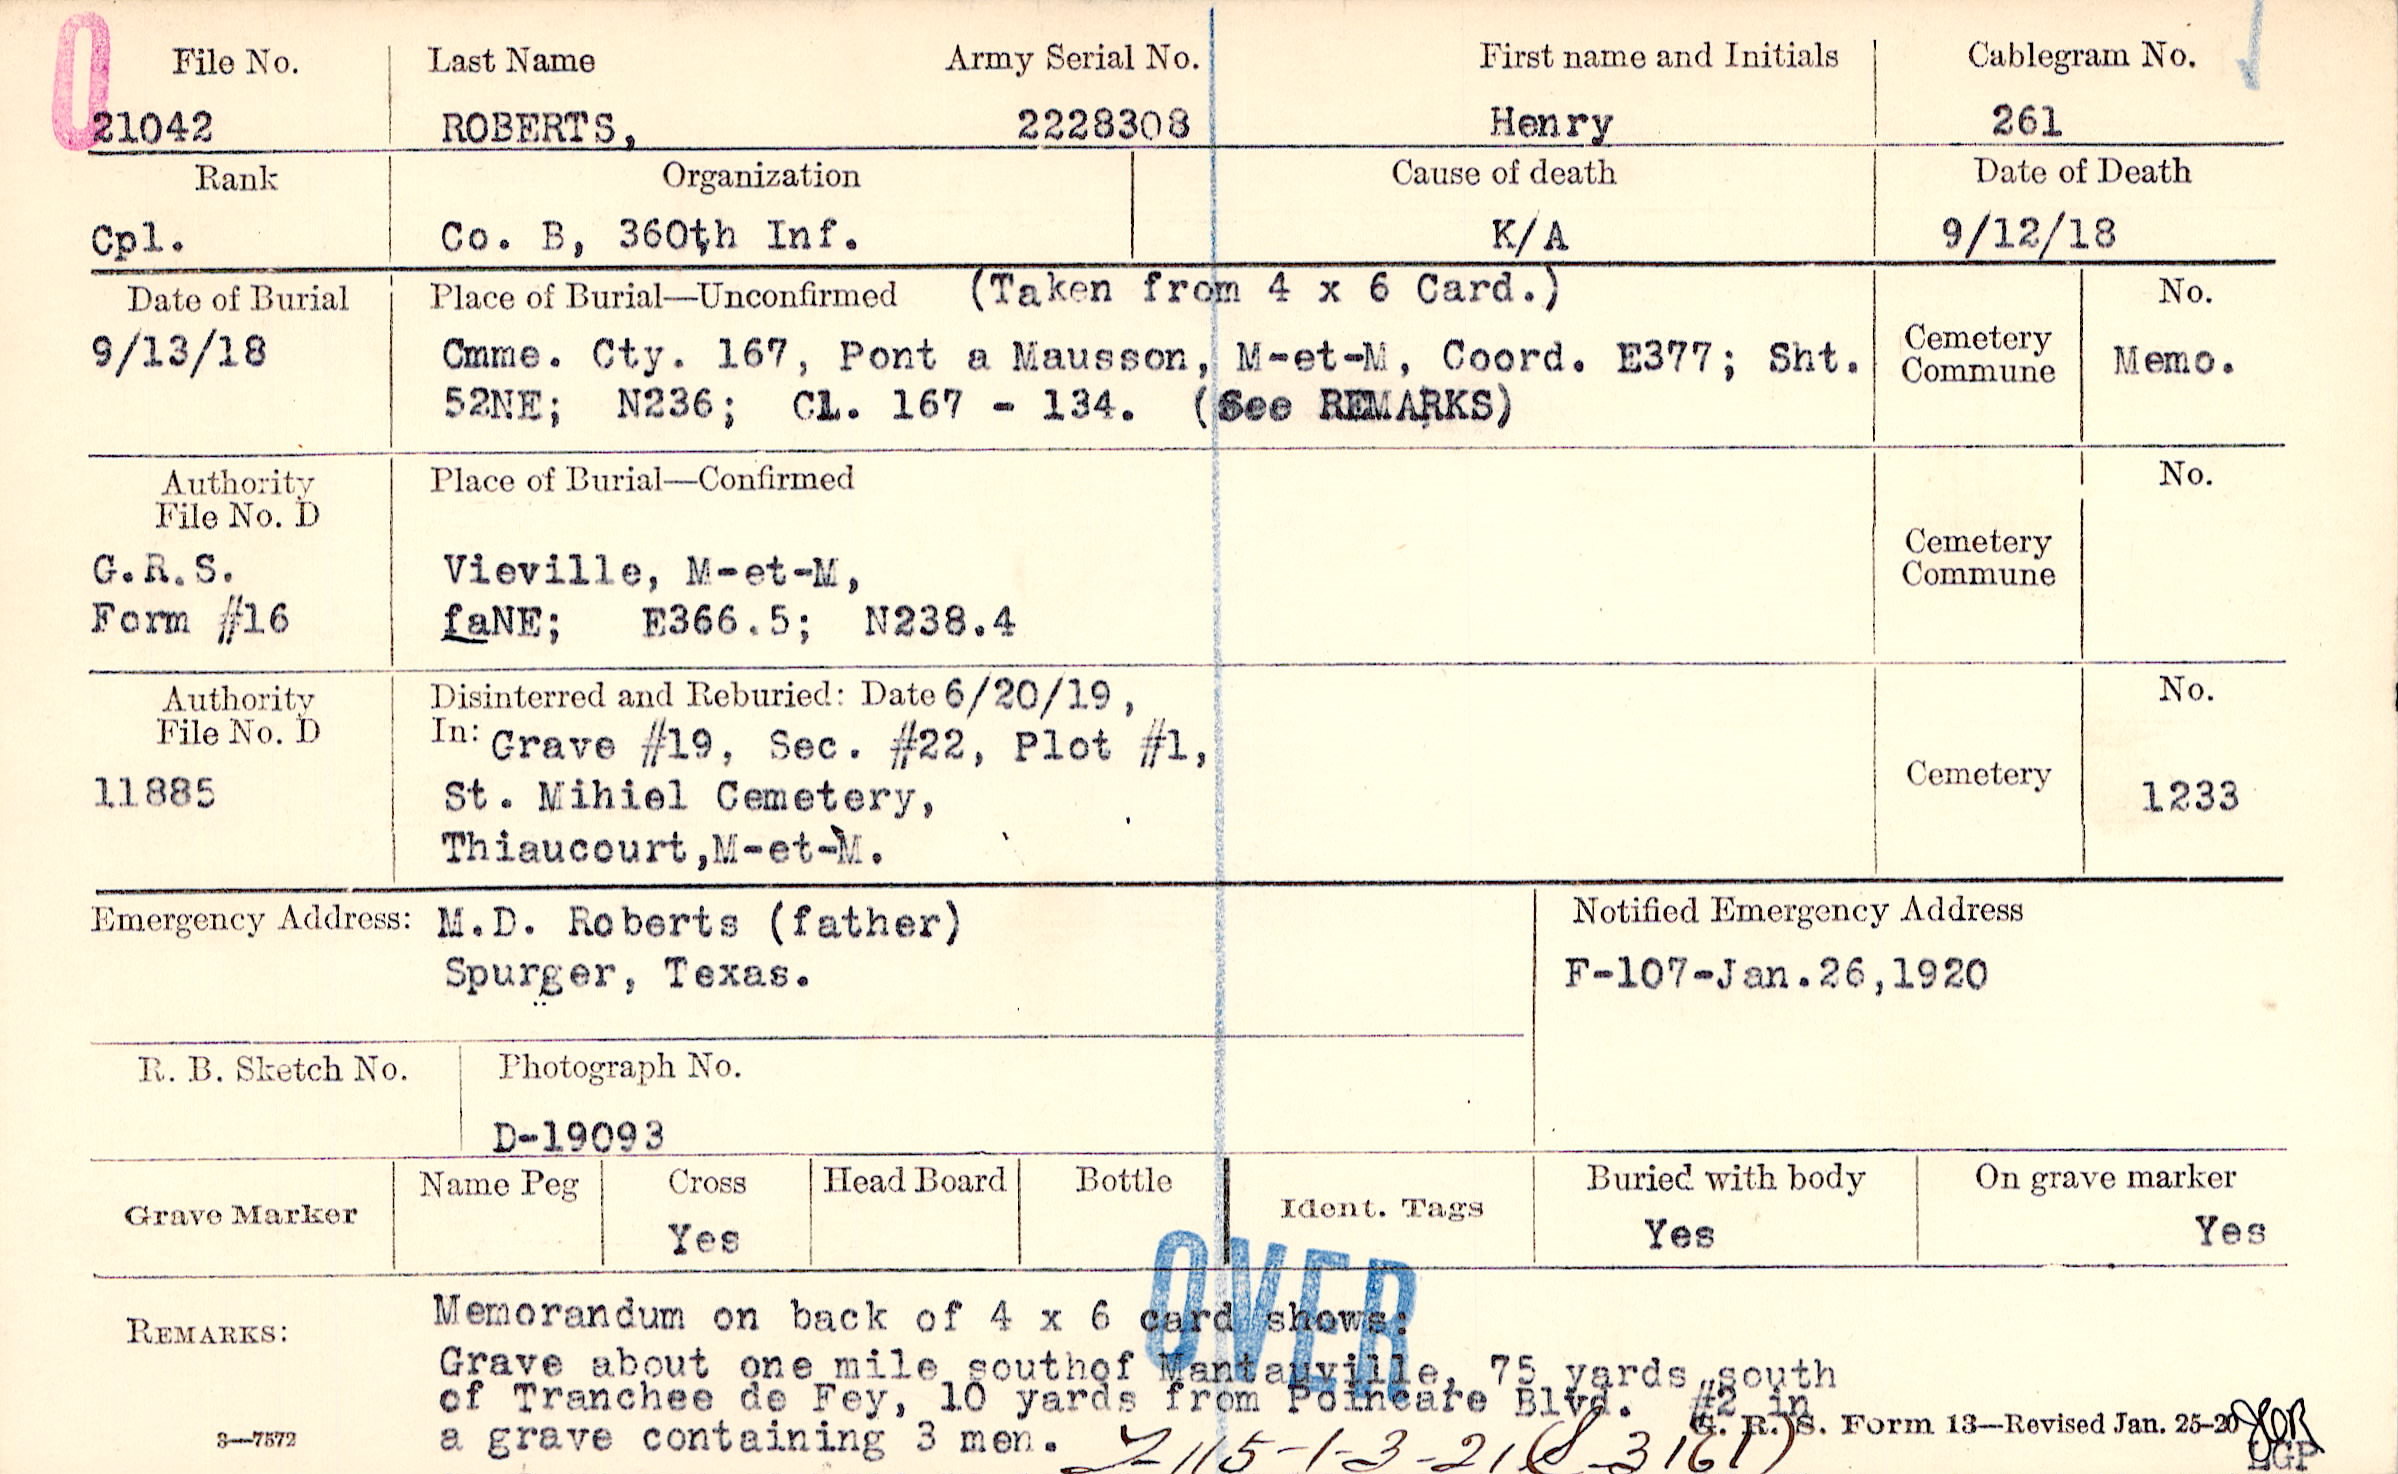 O
File No. Last Name Army Serial No. First name and Initials Cablegram No.
21042 ROBERTS, 2228308 Henry 261
Rank Organization Cause of death Date of Death
Cpl. Co. B, 360th Inf. K/A 9/12/18
Date of Burial Place of Burial—Unconfirmed (Taken from 4 x 6 Card.) No.
9/13/18 Cmme. Cty. 167, Pont a Mausson, M-et-M, Coord. E377; Sht. Cemetery Commune Memo.
52NE; N236; Cl. 167 - 134. (See REMARKS)
Authority File No. D Place of Burial—Confirmed No.
G.R.S. Vieville, M-et-M, Cemetery Commune
Form #16 faNE; E366.5; N238.4
Authority Disinterred and Reburied: Date 6/20/19, No.
File No. D In: Grave #19, Sec. #22, Plot #1,
11885 St. Mihiel Cemetery, Cemetery 1233
Thiaucourt,M-et-M.
Emergency Address: M.D. Roberts (father) Notified Emergency Address
Spurger, Texas. F-107-Jan.26,1920
R. B. Sketch No. Photograph No.
D-19093
Grave Marker Name Peg Cross Head Board Bottle Ident. Tags Buried with body On grave marker
Yes Yes Yes
OVER
REMARKS: Memorandum on back of 4 x 6 card shows:
Grave about one mile southof Mantauville, 75 yards south
of Tranchee de Fey, 10 yards from Poincare Blvd. #2 in
a grave containing 3 men.
3—7572 G. R. S. Form 13—Revised Jan. 25-20
LGP